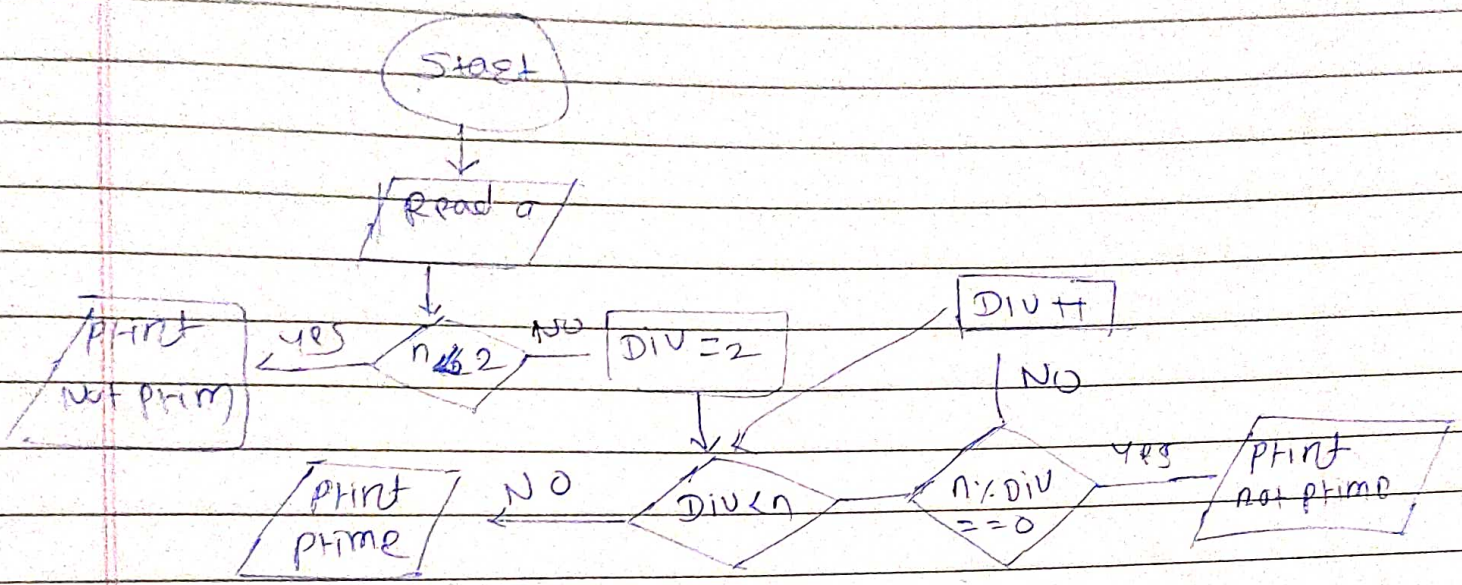 Start
Read a
DIV++
Print
Not Prim
yes
n 2
NO
DIV=2
NO
Print
prime
NO
DIV<n
n%DIV
==0
yes
Print
not prime